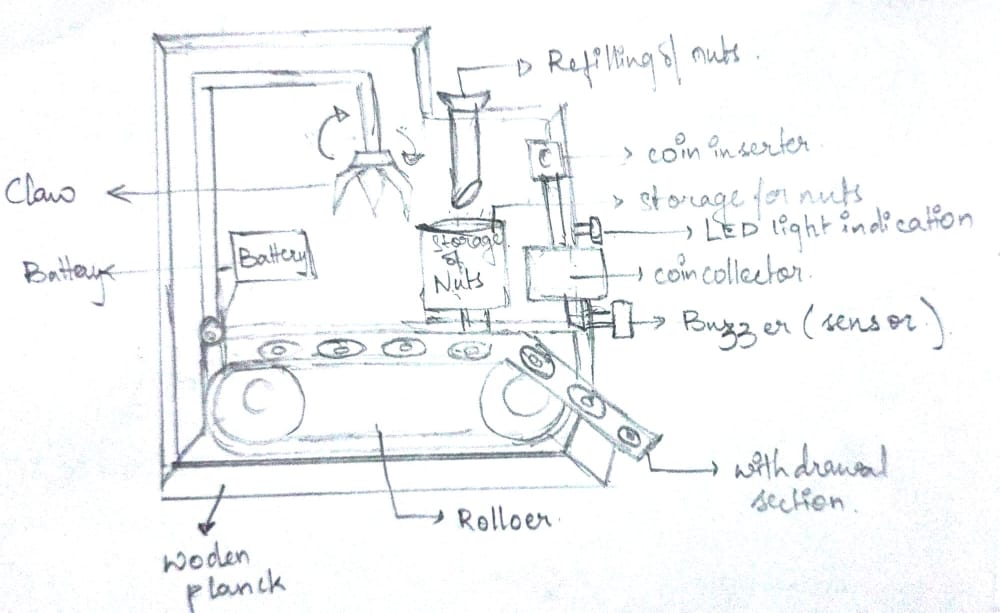 Refilling of nuts.
coin inserter.
Claw
storage for nuts
LED light indication
storage
of
Nuts
Battery
Battery
coin collector.
Buzzer (sensor).
withdrawal
section.
Rolloer.
woden
planck